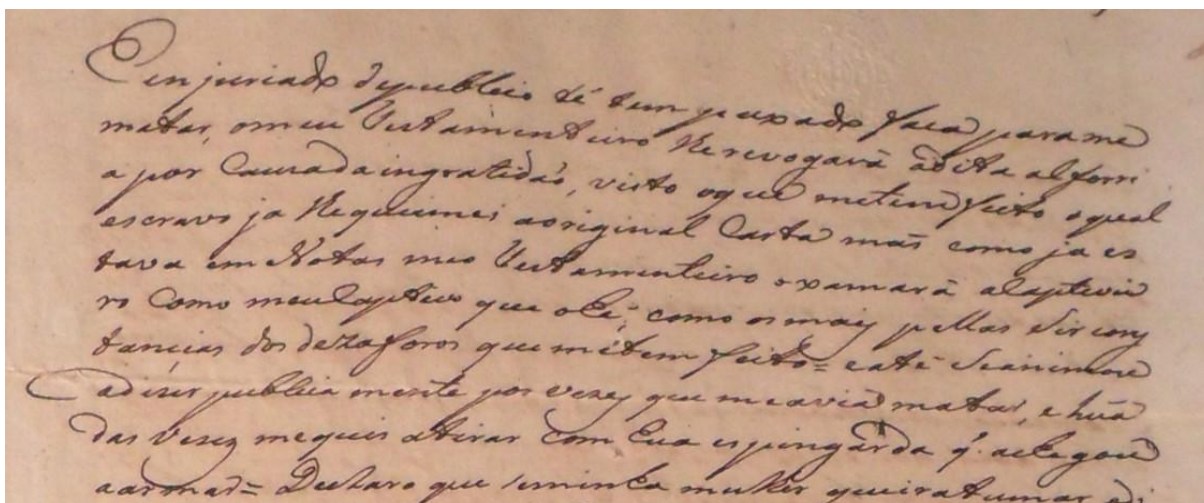 enjuriado de publico té tem puxado faca para me
matar, o meu Testamenteiro Revogará a dita alforri
a por Cauza da ingratidaõ, visto o que me tem feito o qual
escravo ja Requeimei a original Carta mas como ja es
tava em Notas meo Testamenteiro o xamará a Captivei
ro Como meu Captivo que o hé, como os mais pellas Sircons
tancias dos dezaforos que me tem feito = e até
a dizer publica mente por vezes que me avia matar, e huã
das vezes me quis atirar Com espingarda q. a chegou
a armar = Declaro que se minha mulher queira tomar